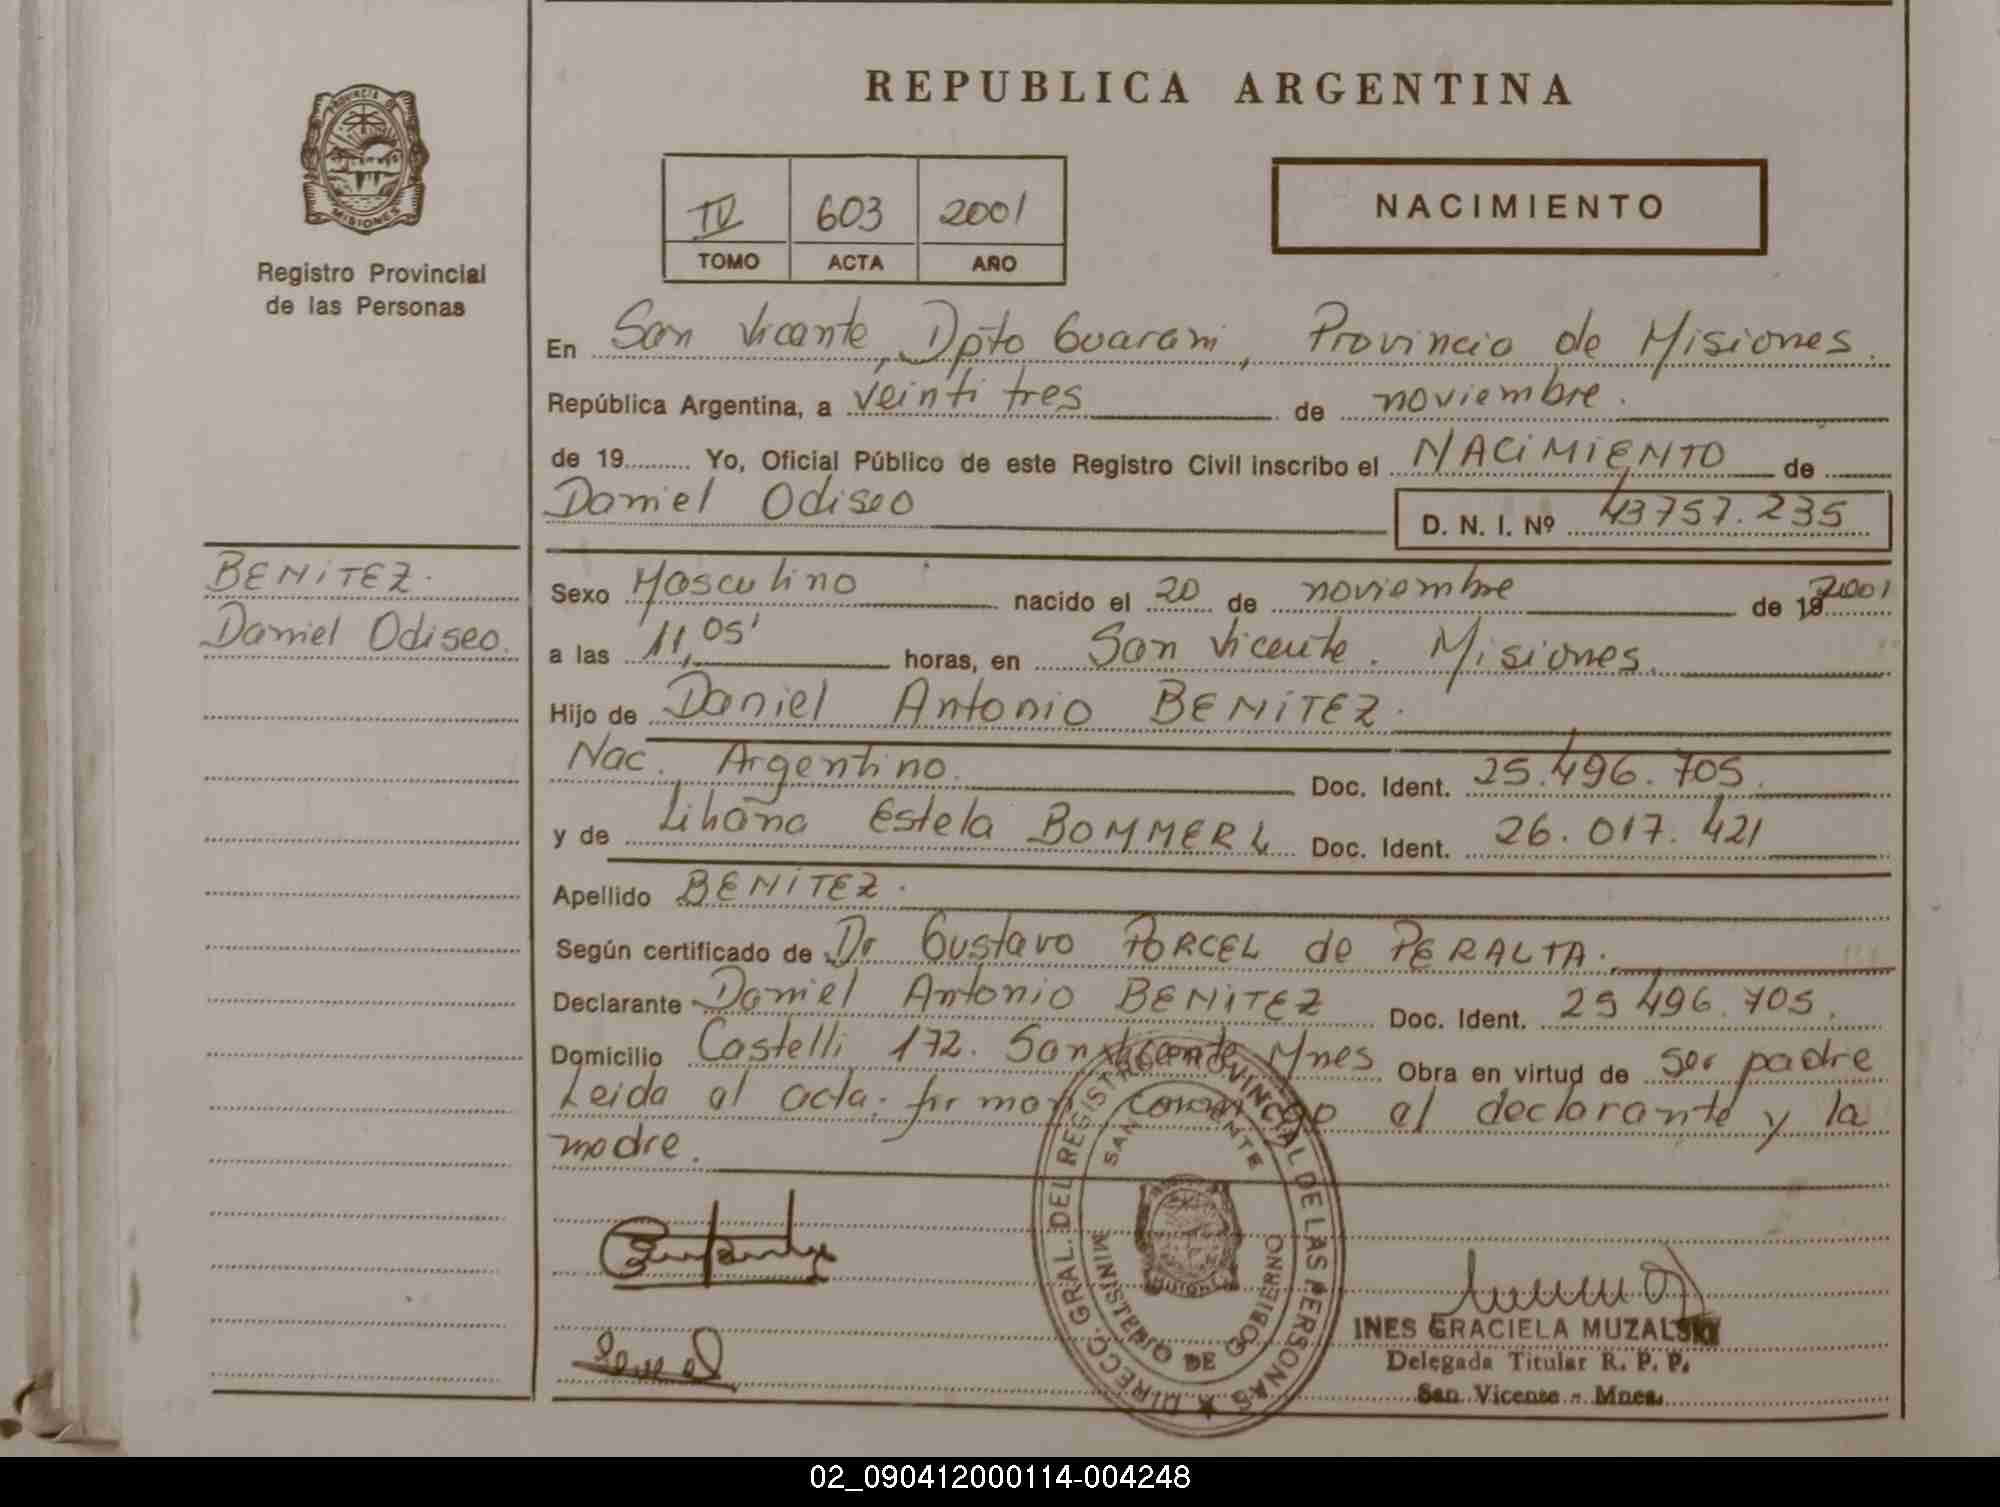 PROVINCIA DE
MISIONES
Registro Provincial
de las Personas
REPUBLICA ARGENTINA
IV 603 2001
TOMO ACTA AÑO
NACIMIENTO
En San Vicente, Dpto Guarani, Provincia de Misiones.
República Argentina, a veinti tres de noviembre.
de 19 Yo, Oficial Público de este Registro Civil inscribo el NACIMIENTO de
Daniel Odiseo D. N. I. Nº 43757.235
BENITEZ.
Daniel Odiseo.
Sexo Masculino nacido el 20 de noviembre de 19 2001
a las 11,05' horas, en San Vicente. Misiones.
Hijo de Daniel Antonio BENITEZ.
Nac. Argentino. Doc. Ident. 25.496.705.
y de Liliana Estela BOMMERL Doc. Ident. 26.017.421
Apellido BENITEZ.
Según certificado de Dr Gustavo PORCEL de PERALTA.
Declarante Daniel Antonio BENITEZ Doc. Ident. 25 496.705.
Domicilio Castelli 172. San Vicente Mnes Obra en virtud de ser padre
Leida al acta. firman conmigo el declarante y la
madre.
DIRECC. GRAL. DEL REGISTRO PROVINCIAL DE LAS PERSONAS
SAN VICENTE
MINISTERIO DE GOBIERNO
MISIONES
INES GRACIELA MUZALSKY
Delegada Titular R. P. P.
San Vicente - Mnes.
02_090412000114-004248